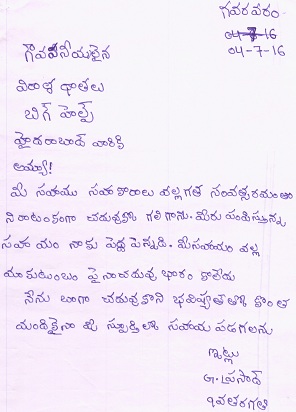 గవరవరం
04-7-16
04-7-16
గౌవవనీయులైన
విరాళ దాతలు
బిగ్ హెల్ప్
హైదరాబాద్ వారికి
అయ్యా!
మీ సహాయ సహకారాలు వల్ల గత సంవత్సరమంతా
నిరాటంకంగా చదువుకో గలిగాను. మీరు పండిస్తున్న
సహాయం నాకు పెద్ద పెన్నిది. మీ సహాయం వల్ల
మా కుటుంబం పైనా చదువు భారం కాలేదు
నేను బాగా చదువుకొని భవిష్యత్ లో కొంత
మందికైనా మీ స్పూర్తితో సహాయ పడగలను
ఇట్లు
G. ప్రసాద్
9వ తరగతి